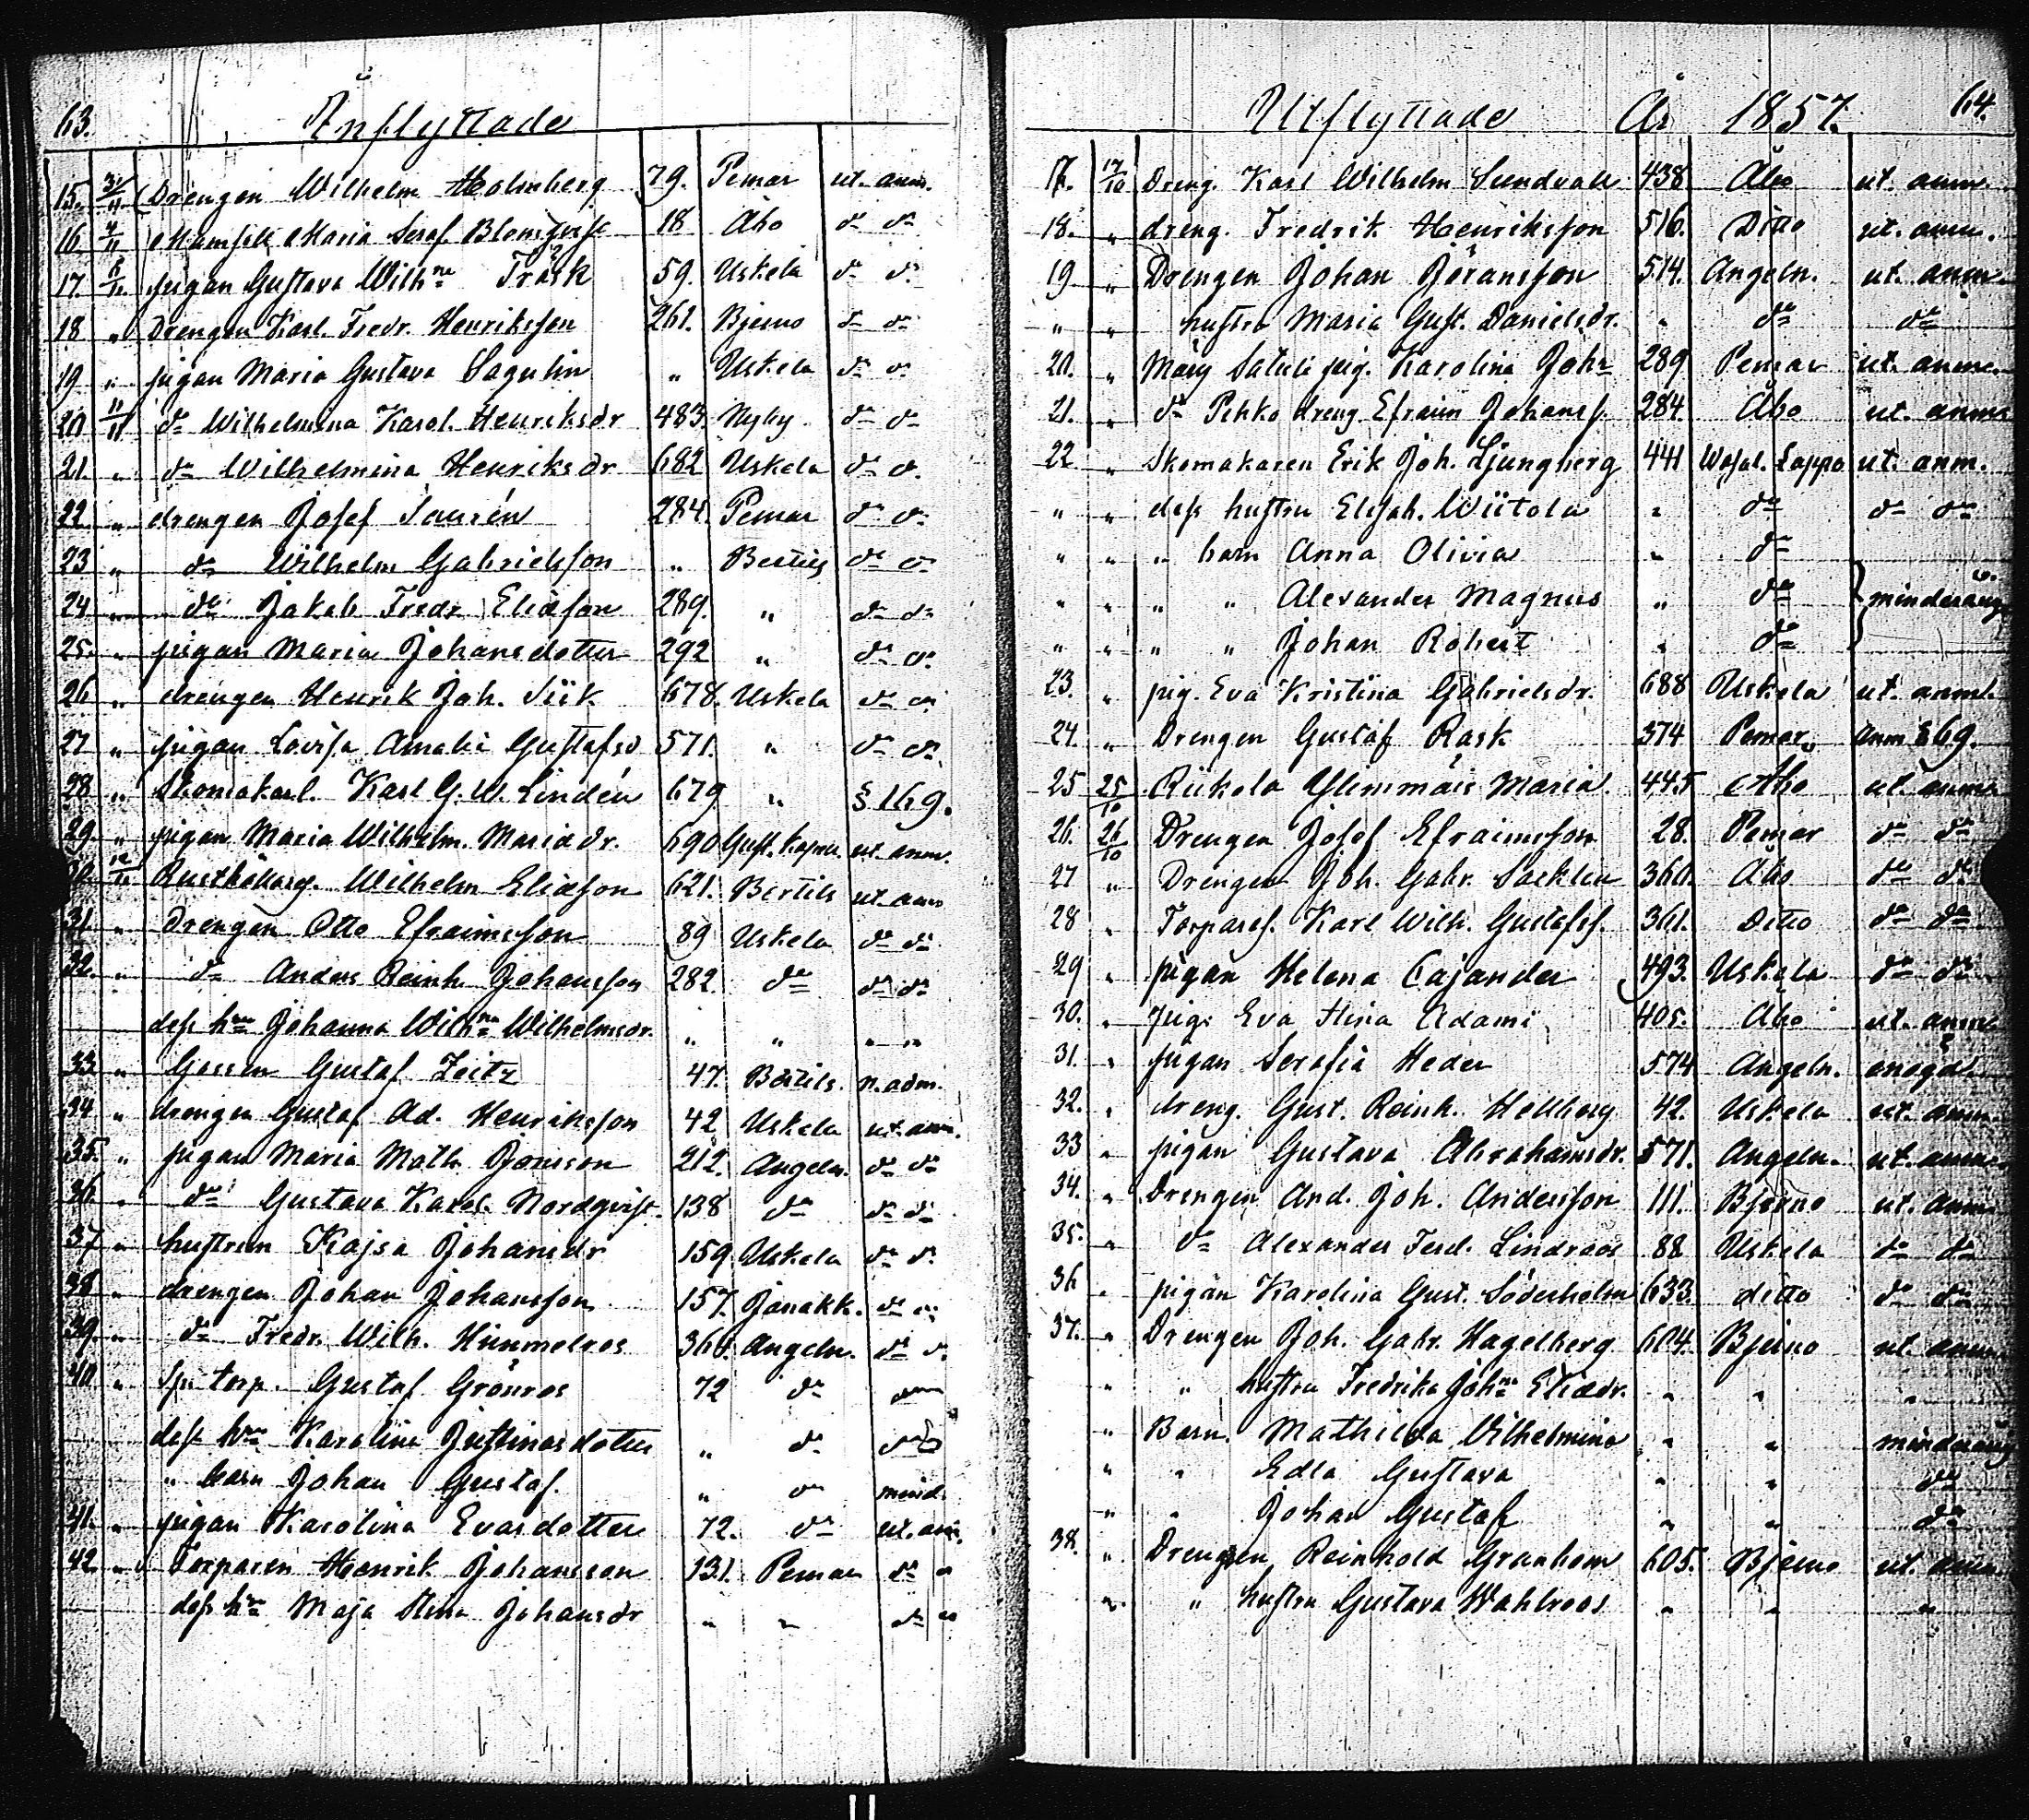 63.
Inflyttade
15. 3/11 Drengen Wilhelm Holmberg 79. Pemar ut. anm.
16 4/11 Mamsell Maria Seraf. Blomqvist 18 Åbo do do
17. pigan Gustava Wilhna Träsk 59. Uskela do do
18 " Drengen Karl Fredr. Henriksson 261. Bjerno do do
19 " pigan Maria Gustava Sagulin " Uskela do do
20 11/11 do Wilhelmina Karol. Henriksdr 483. Nyby do do
21. " do Wilhelmina Henriksdr 682 Uskela do do
22 " drengen Josef Saurén 284. Pemar do do
23 " do Wilhelm Gabrielsson " Bertils do do
24 " do Jakob Fredr. Eliasson 289. " do do
25. " pigan Maria Johansdotter 292 " do do
26 " drengen Henrik Joh. Siik 678. Uskela do do
27 " pigan Lovisa Amalia Gustafsd 571. " do do
28 " Skomakarl. Karl G. W. Lindén 679 " § 169.
29. " pigan Maria Wilhelm. Mariadr. 690 Gust. Kapell. ut. anm.
30. Rusthållarg. Wilhelm Eliasson 621. Bertils ut anm
31. " Drengen Otto Efraimsson 89 Uskela do do
32. " do Anders Reinh Johansson 282. do do do
dess hru Johanna Wilhna Wilhelmsdr. " " " "
33 " Gossen Gustaf Zeitz 47. Bertils. n. adm.
34 " drengen Gustaf Ad. Henriksson 42 Uskela ut. anm.
35. " pigan Maria Math. Jonsson 212. Angeln. do do
36 " do Gustava Karol. Nordqvist. 138 do do do
37 " hustrun Kajsa Johansdr 159. Uskela do do
38 " drengen Johan Johansson 157. Janakk. do do
39. " do Fredr. Wilh. Himmelros 360. Angeln. do do
40 " Sp: torp. Gustaf Grönros 72 do
dess hru Karolina Justinasdotter " do
" barn Johan Gustaf. " do mind.
41. " pigan Karolina Evasdotter 72. do ut. anm.
42. " Torparen Henrik Johansson 131. Pemar do "
dess hru Maja Stina Johansdr " " do "
Utflyttade År 1857. 64.
17. 17/10 Dreng. Karl Wilhelm Sundvall 438 Åbo ut. anm.
18. " dreng. Fredrik Henriksson 516. Ditto ut. anm.
19 " Drengen Johan Jöransson 514. Angeln. ut. anm.
" " hustru Maria Gust. Danielsdr. " do do
20. " Märy Satuli pig. Karolina Johna 289 Pemar ut. anm.
21. " do Pehko dreng Efraim Johanss. 284. Åbo ut. anm
22 " Skomakaren Erik Joh. Ljungberg 441 Wasal. Lappo ut. anm.
" " dess hustru Elisab. Wiitola " do do do
" " " barn Anna Olivia " do
" " " " Alexander Magnus " do minderårig
" " " " Johan Robert " do
23. " pig. Eva Kristina Gabrielsdr. 688 Uskela ut. anm.
24. " Drengen Gustaf Rask 374 Pemar anm § 69.
25 25/10 Riikola Ylimmäis Maria. 445 Åbo ut anm.
26. 26/10 Drengen Josef Efraimsson 28. Pemar do do
27 " Drengen Joh. Gabr. Sacklin 360. Åbo do do
28 " Torpares. Karl Wilh. Gustafss. 361. Ditto do do
29 " pigan Helena Cajander 493. Uskela do do
30. " Pig. Eva Stina Adami 405. Åbo ut. anm
31. " pigan Serafia Heder 574 Angeln.
32. " dreng. Gust. Reinh. Hellberg 42. Uskela ut. anm.
33 " pigan Gustava Abrahamsdr. 571. Angeln. ut. anm.
34. " Drengen And. Joh. Andersson 111. Bjerno ut. anm
35. " do Alexander Ferd. Lindroos 88 Uskela do do
36 " pigan Karolina Gust. Söderholm 633. ditto do do
37. " Drengen Joh. Gabr. Hagelberg 604. Bjerno ut. anm.
" " hustru Fredrika Johna Eliædr. " " "
" Barn. Mathilda Wilhelmina " " minderårig
" " Edla Gustava " " do
" " Johan Gustaf " " do
38. " Drengen Reinhold Granholm 605. Bjerno ut. anm
" " hustru Gustava Wahlroos " " "